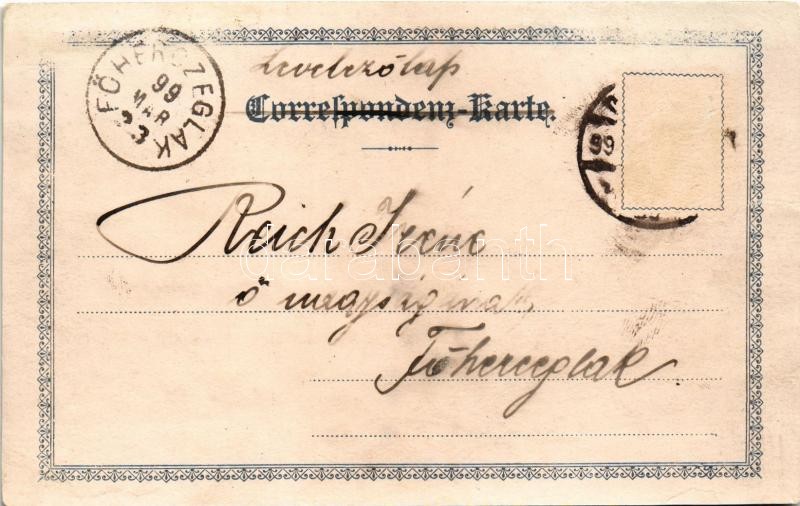 FŐHERCZEGLAK
99
MAR
23
Levelezőlap
Correspondenz-Karte.
99
Reich Iréne
ő nagyságának
Főherceglak
darabanth